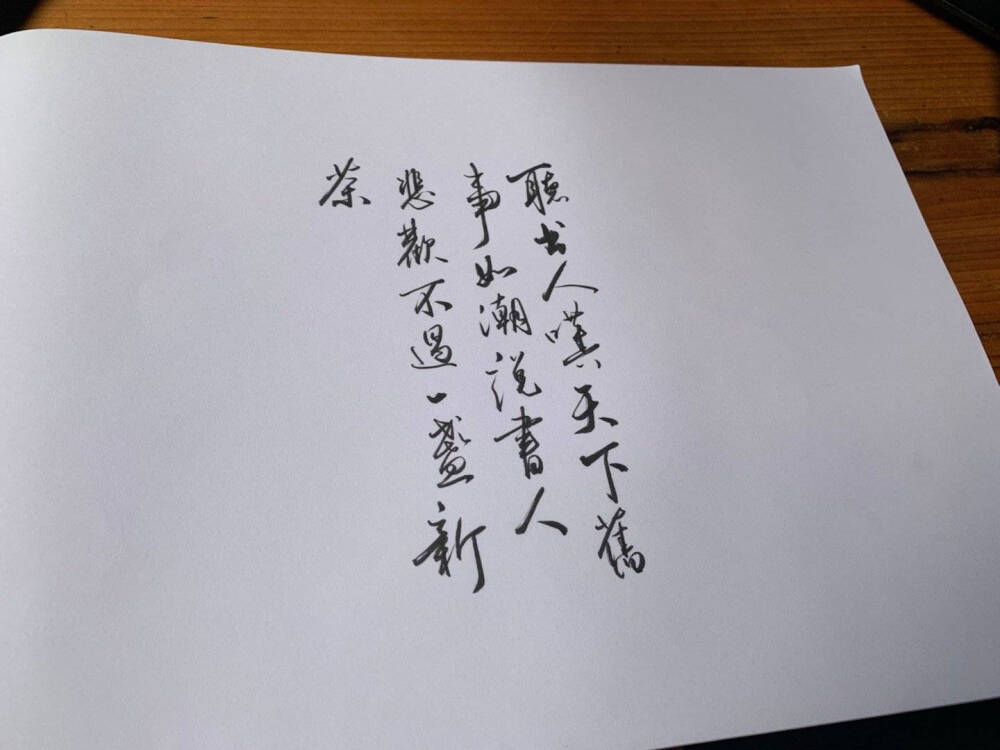 聽书人嘆天下舊
事如潮说書人
悲歡不過一盞新
茶